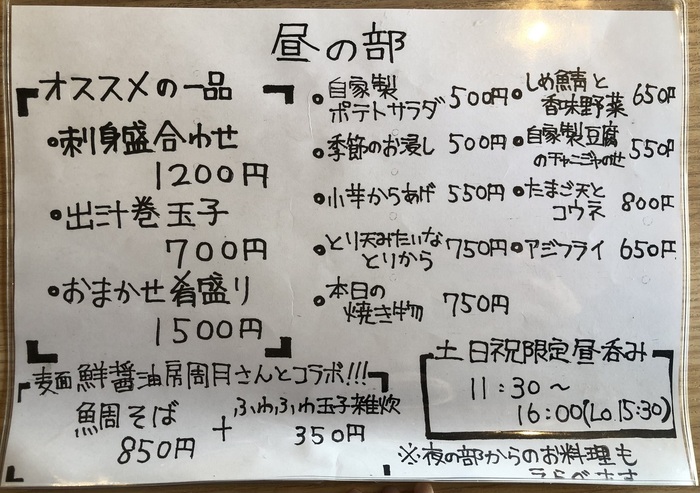 昼の部
オススメの一品
•刺身盛合わせ
1200円
•出汁巻玉子
700円
•おまかせ肴盛り
1500円
•自家製
ポテトサラダ 500円
•季節のお浸し 500円
•小芋からあげ 550円
•とり天みたいな
とりから 750円
•本日の
焼き物 750円
•しめ鯖と
香味野菜 650円
•自家製豆腐
のチャンジャのせ 550円
•たまご天と
コウネ 800円
•アジフライ 650円
麦面鮮醤油房周月さんとコラボ!!!
魚周そば
850円
+
ふわふわ玉子雑炊
350円
土日祝限定昼呑み
11:30～
16:00(Lo.15:30)
※夜の部からのお料理も